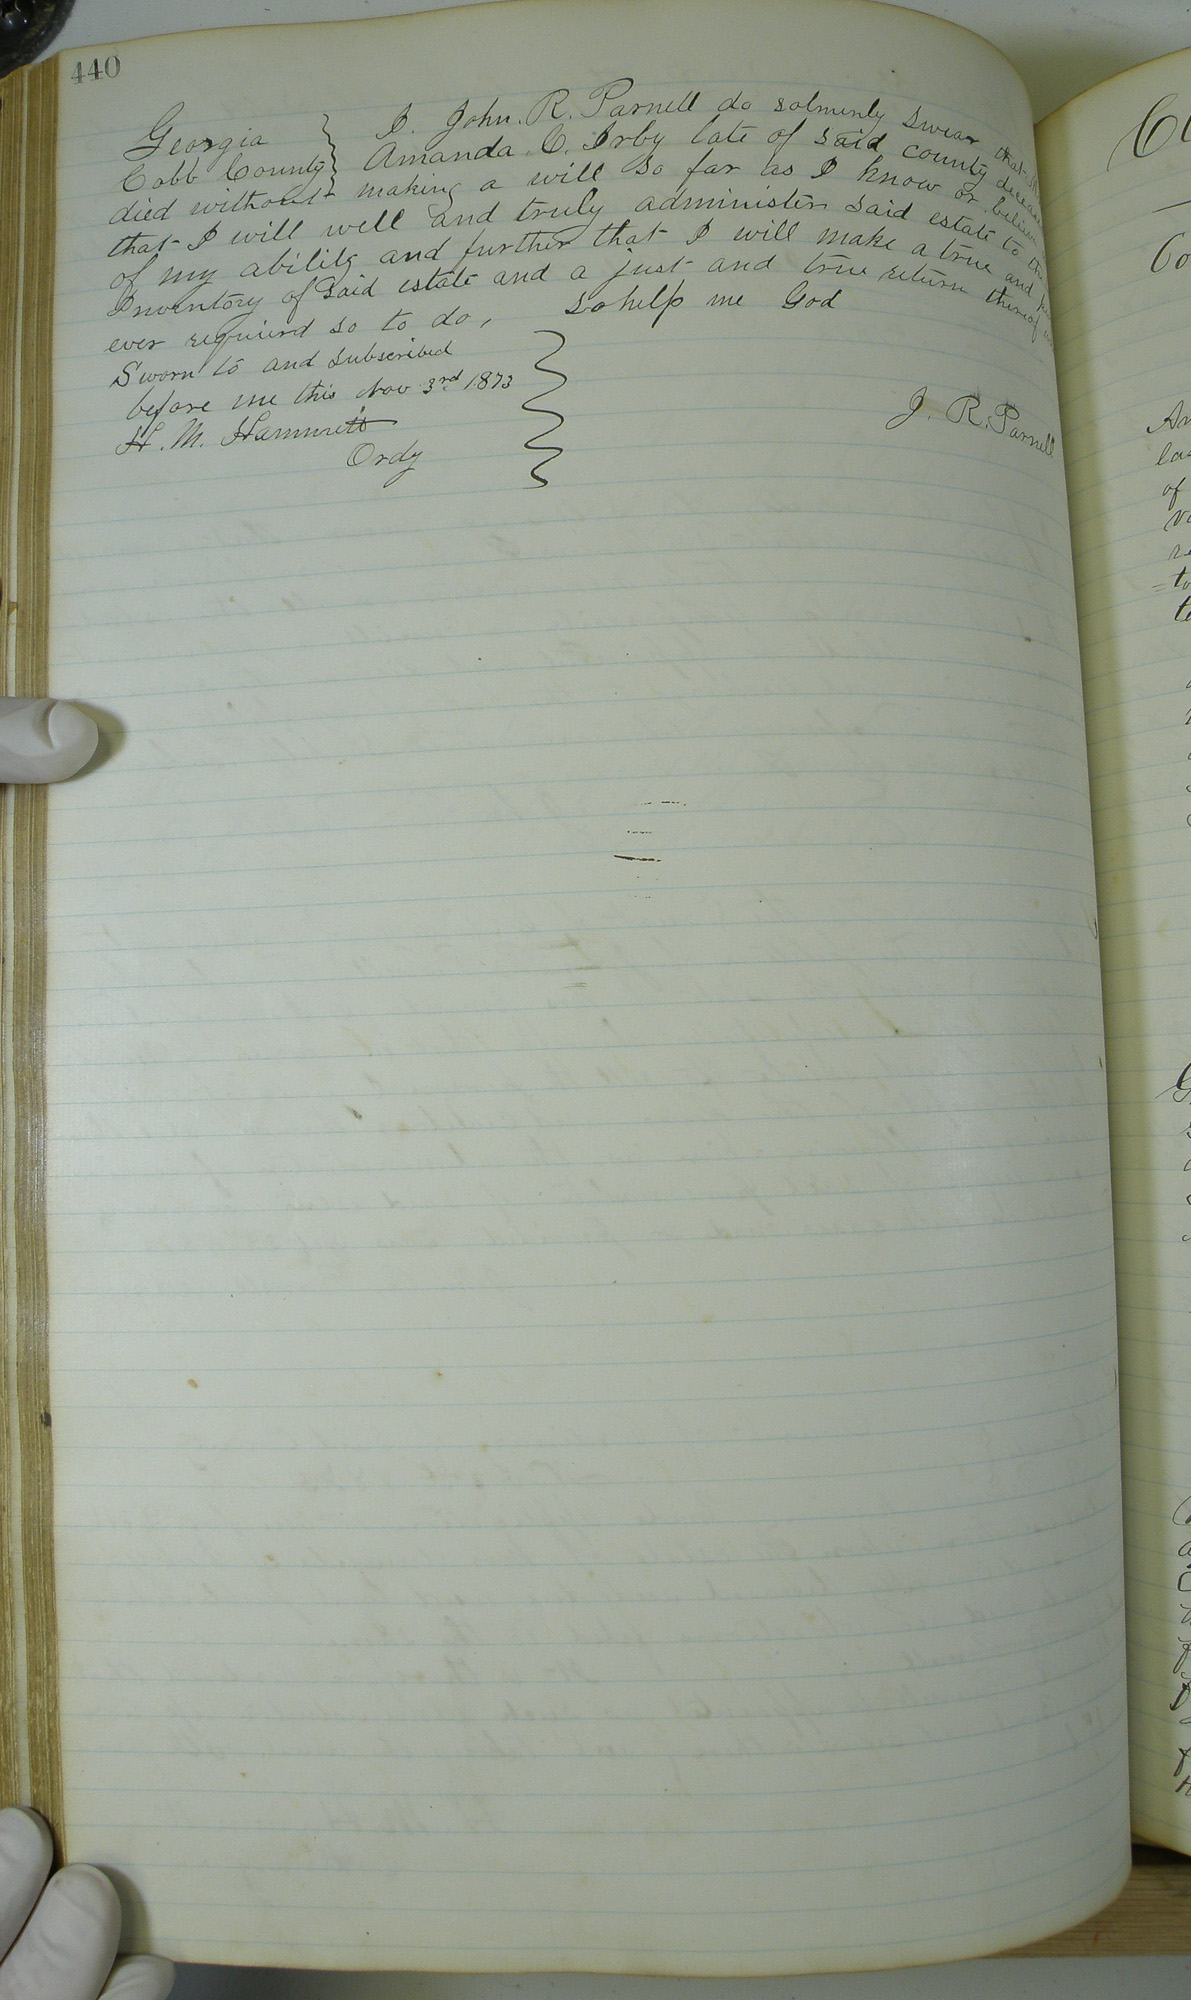 440
Georgia } I. John. R. Parnell do solmenly swear that
Cobb County } Amanda C. Irby late of said county deceased
died without making a will so far as I know or believe
that I will well and truly administer said estate to the
of my ability and further that I will make a true and
Inventory of said estate and a just and true return thereof
ever required so to do, So help me God
Sworn to and subscribed
before me this Nov 3rd 1873
J. R. Parnell
H. M. Hammett
Ordy